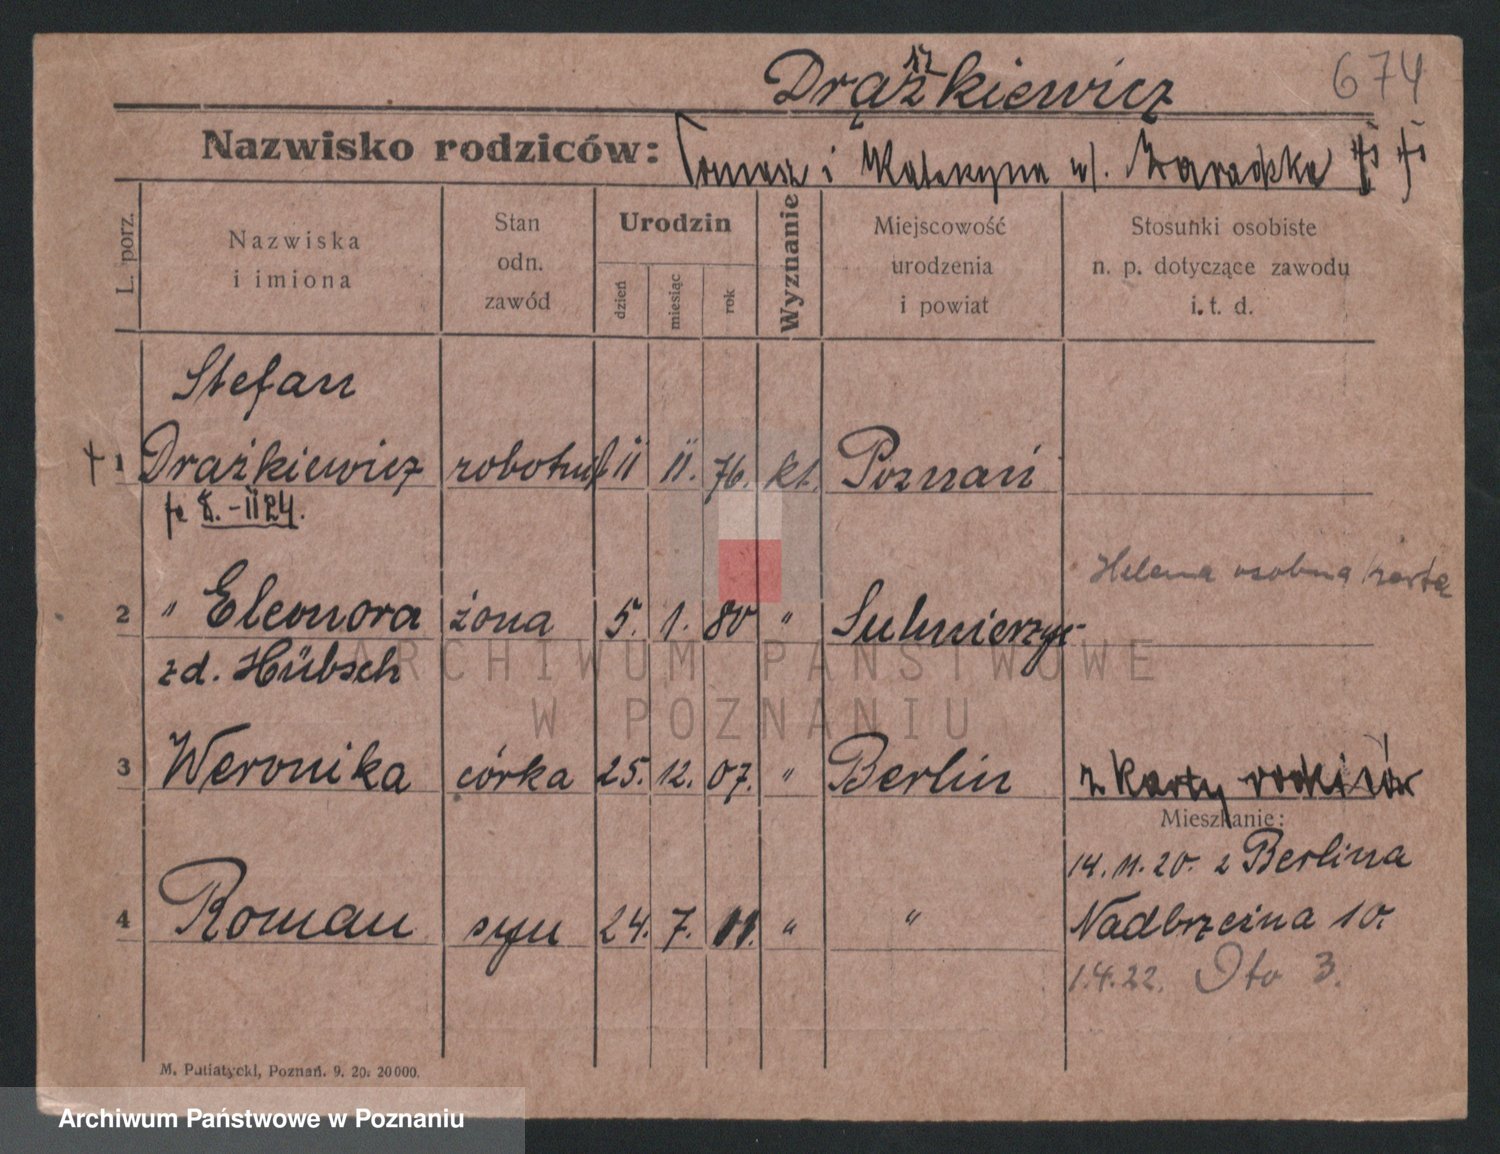 Drążkiewicz
674
Nazwisko rodziców: Tomasz i Katarzyna
L. porz.
Nazwiska
i imiona
Stan
odn.
zawód
Urodzin
dzień
miesiąc
rok
Wyznanie
Miejscowość
urodzenia
i powiat
Stosunki osobiste
n. p. dotyczące zawodu
i. t. d.
Stefan
+ 1 Drażkiewicz robotnik 11 11. 76. kt. Poznań
8.-II 24.
Helena osobna kartę
2 " Eleonora żona 5. 1. 80 " Sulmierzyc
zd. Hübsch
3 Weronika córka 25. 12. 07. " Berlin z karty rodziców
Mieszkanie:
14.11.20. z Berlina
4 Roman syn 24. 7. 11. " " Nadbrzeżna 10.
1.4.22. 3.
M. Putiatycki, Poznań. 9. 20. 20000.
ARCHIWUM PAŃSTWOWE
W POZNANIU
Archiwum Państwowe w Poznaniu